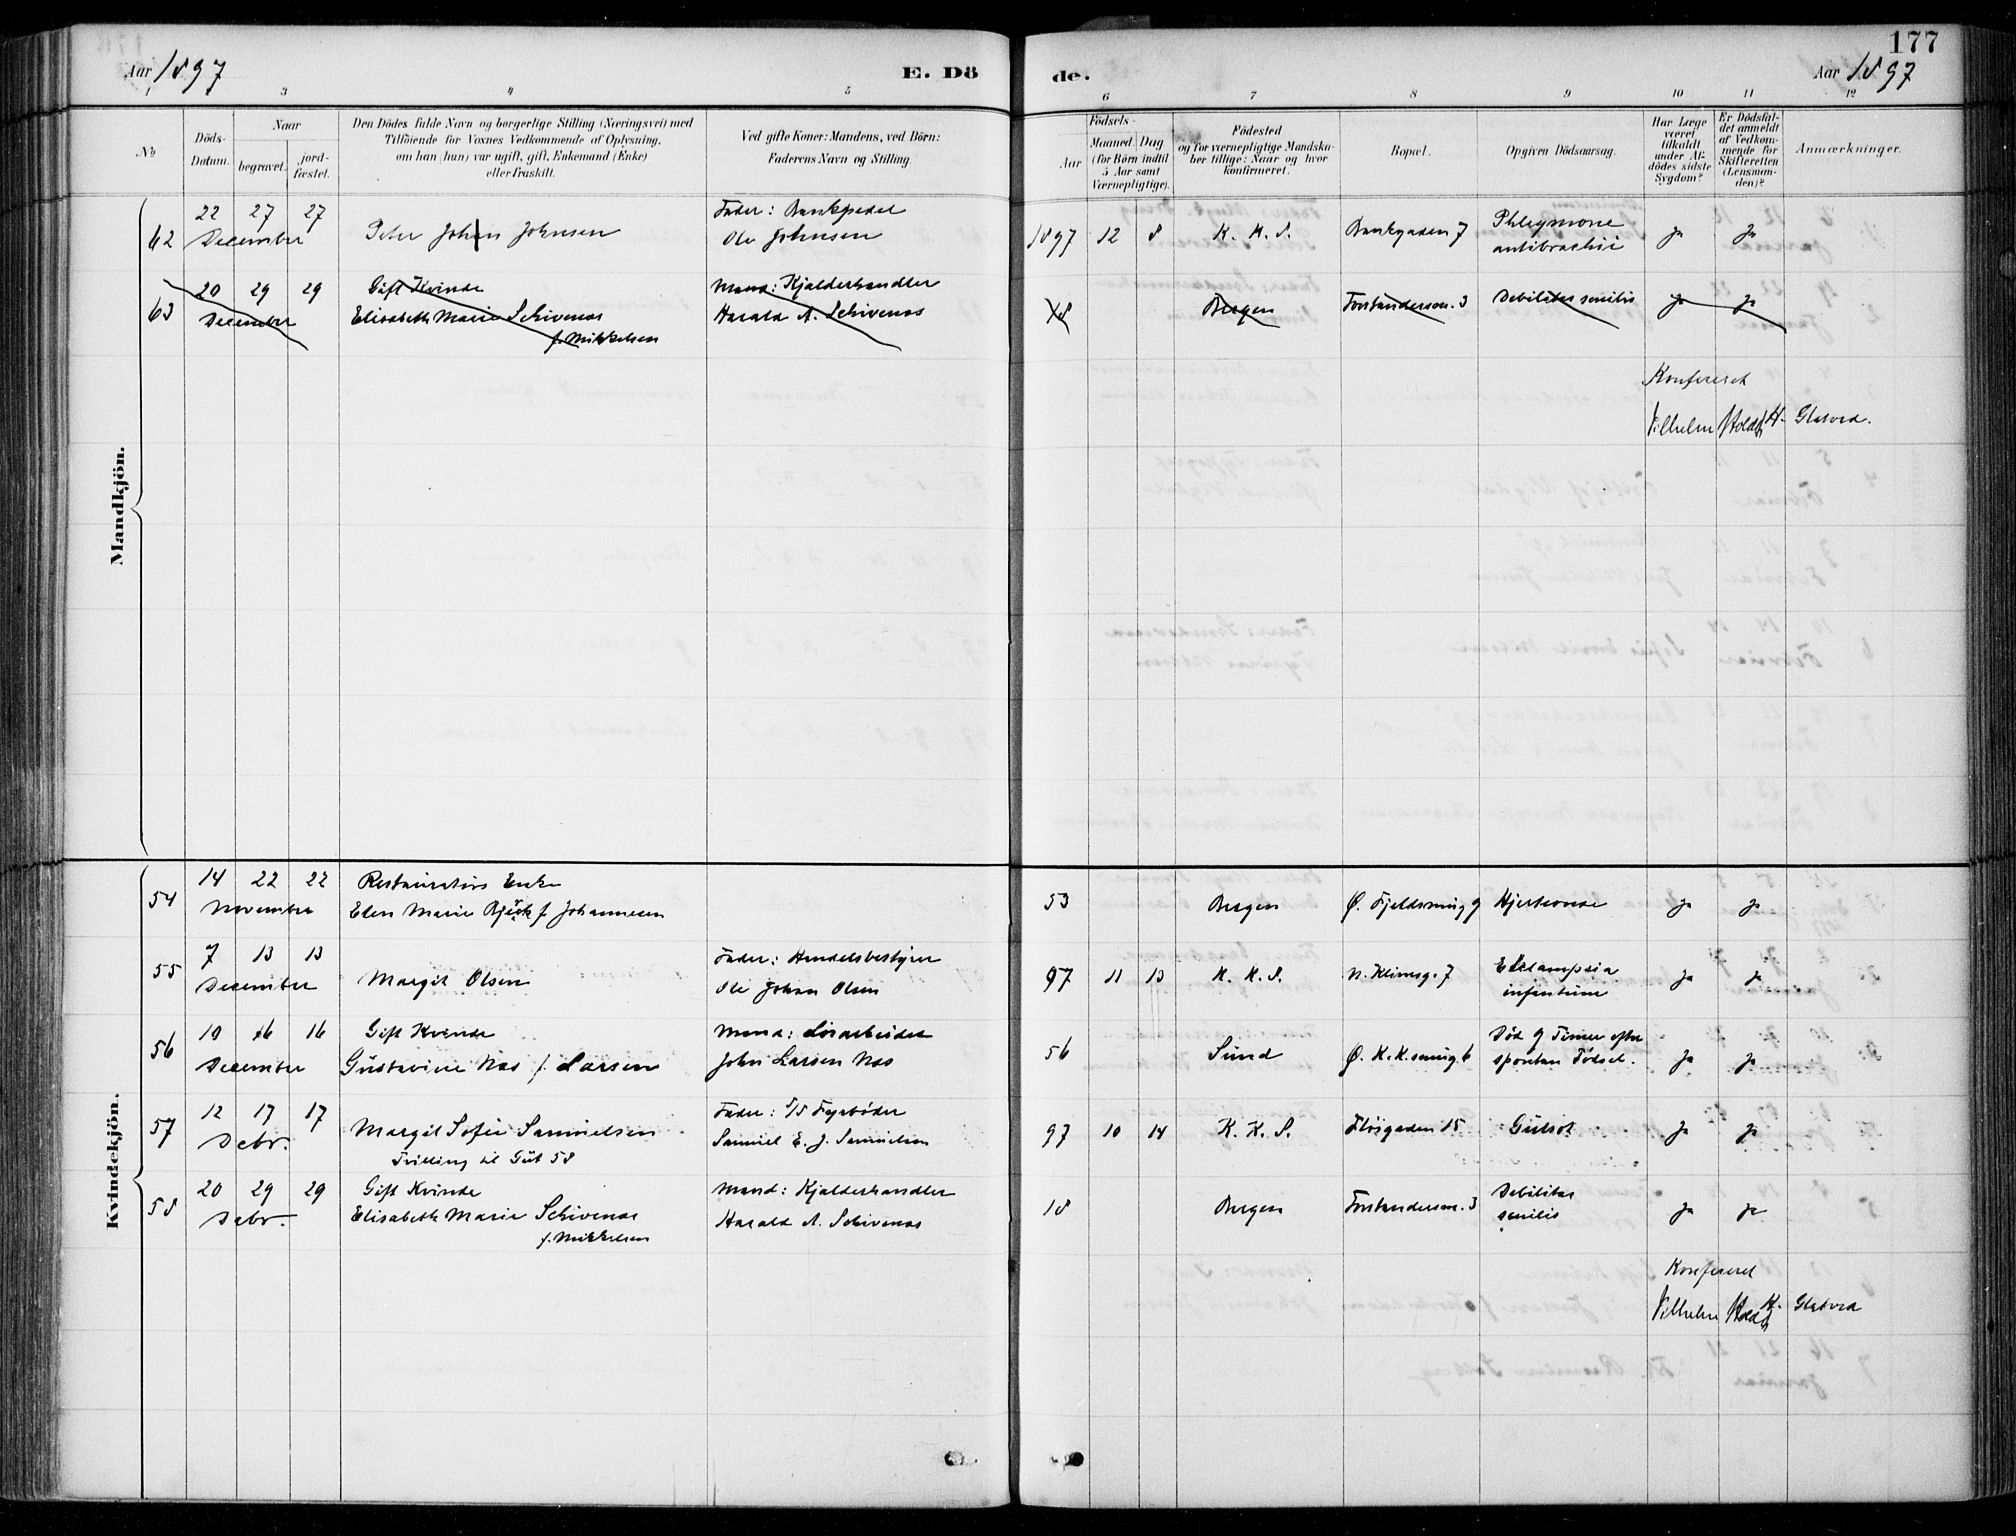 177
Aar 1897
E. Dö
de.
Aar 1897
1 3 4 5 6 7 8 9 10 11 12
No
Döds-Datum.
Naar
begravet.
jord-fæstet.
Den Dödes fulde Navn og borgerlige Stilling (Næringsvei) med
Tilföiende for Voxnes Vedkommende af Oplysning,
om han (hun) var ugift, gift, Enkemand (Enke)
eller fraskilt.
Ved gifte Koner: Mandens, ved Börn:
Faderens Navn og Stilling.
Födsels-
Aar
Maaned Dag
(for Börn indtil
5 Aar samt
Værnepligtige).
Födested
og for værnepligtige Mandska-
ber tillige: Naar og hvor
konfirmeret.
Bopæl.
Opgiven Dödsaarsag.
Har Læge
været
tilkaldt
under Af-
dödes sidste
Sygdom?
Er Dödsfal-
det anmeldt
af Vedkom-
mende for
Skifteretten
(Lensman-
den)?
Anmærkninger.
Mandkjön.
22 27 27 Fader: Bankpedel
62 December Peter Johan Johnsen Ole Johnsen 1897 12 8 K. K. S. Bankgaden 7 Phlegmone antibrachii Ja Ja
20 29 29 Gift Kvinde Mand: Kjælderhandler
63 December Elisabeth Marie Schivenes Harald A. Schivenes 18 Bergen Forstandersm. 3 Debilitas senilis Ja Ja
f. Mikkelsen
Konfereret
Vilhelm Holdt H. Glatved.
Kvindekjön.
14 22 22 Restauratørs Enke
54 November Elen Marie Bjørk f Johannesen 53 Bergen Ø. Fjeldsmug 9 Hjerteonde Ja Ja
7 13 13 Fader: Handelsbestyrer
55 December Margit Olsen Ole Johan Olsen 97 11 13 K. K. S. N. Klimsg. 7 Eklampsia infantum Ja Ja
10 16 16 Gift Kvinde Mand: Løsarbeider
56 December Gustavine Næs f. Larsen John Larsen Næs 56 Sund Ø. K. K. smug 6 Død 9 Timer efter spontan Fødsel. Ja Ja
12 17 17 Fader: S/S Fyrbøder
57 Decbr. Margit Sofie Samuelsen Samuel E. J. Samuelsen 97 10 14 K. K. S. Fløigaden 15 Gulsot Ja Ja
Tvilling til Gut 58
20 29 29 Gift Kvinde Mand: Kjælderhandler
58 Decbr. Elisabeth Marie Schivenes Harald A. Schivenes 18 Bergen Forstandersm. 3 Debilitas senilis Ja Ja
f. Mikkelsen
Konfereret
Vilhelm Holdt H. Glatved